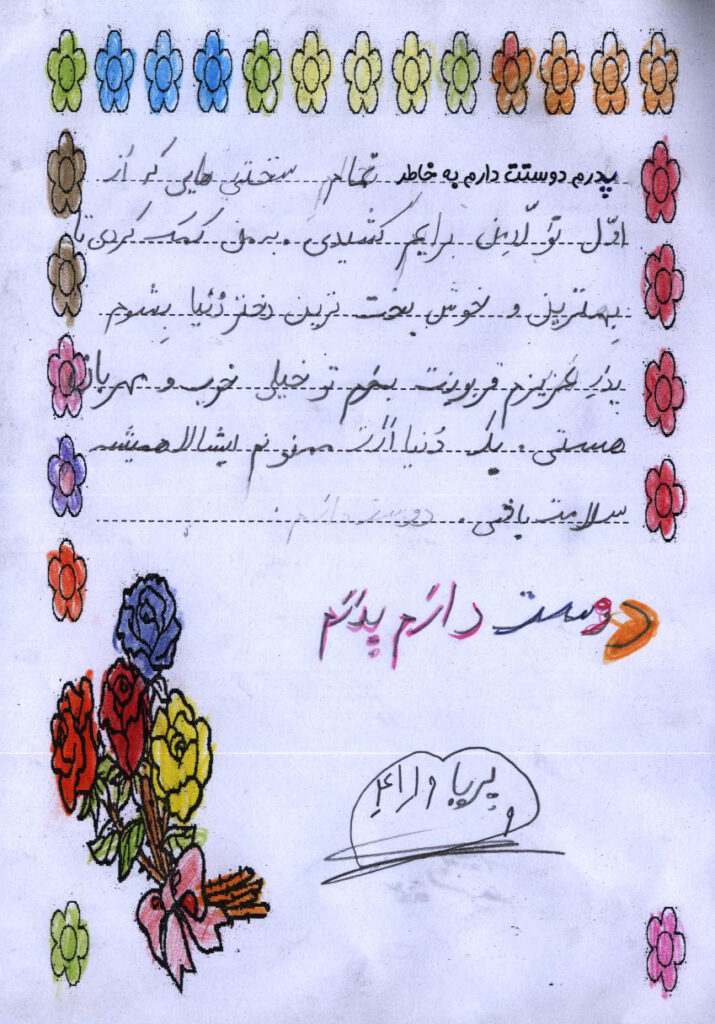 پدرم دوستت دارم به خاطر تمام سختی هایی که از
اوّل تَوَلّدِمَن برایم کشیدی. به من کمک کردی تا
بِهترین و خوش بخت ترین دختر دُنیا بِشوم
پدَرِ عَزیزم قربونت بِرَم تو خیلی خوب و مهربان
هستی. یک دُنیا اَزَت ممنونم ایشالا همیشه
سلامت باشی. دوست دارم.
دوست دارَم پِدَرَم
پریا